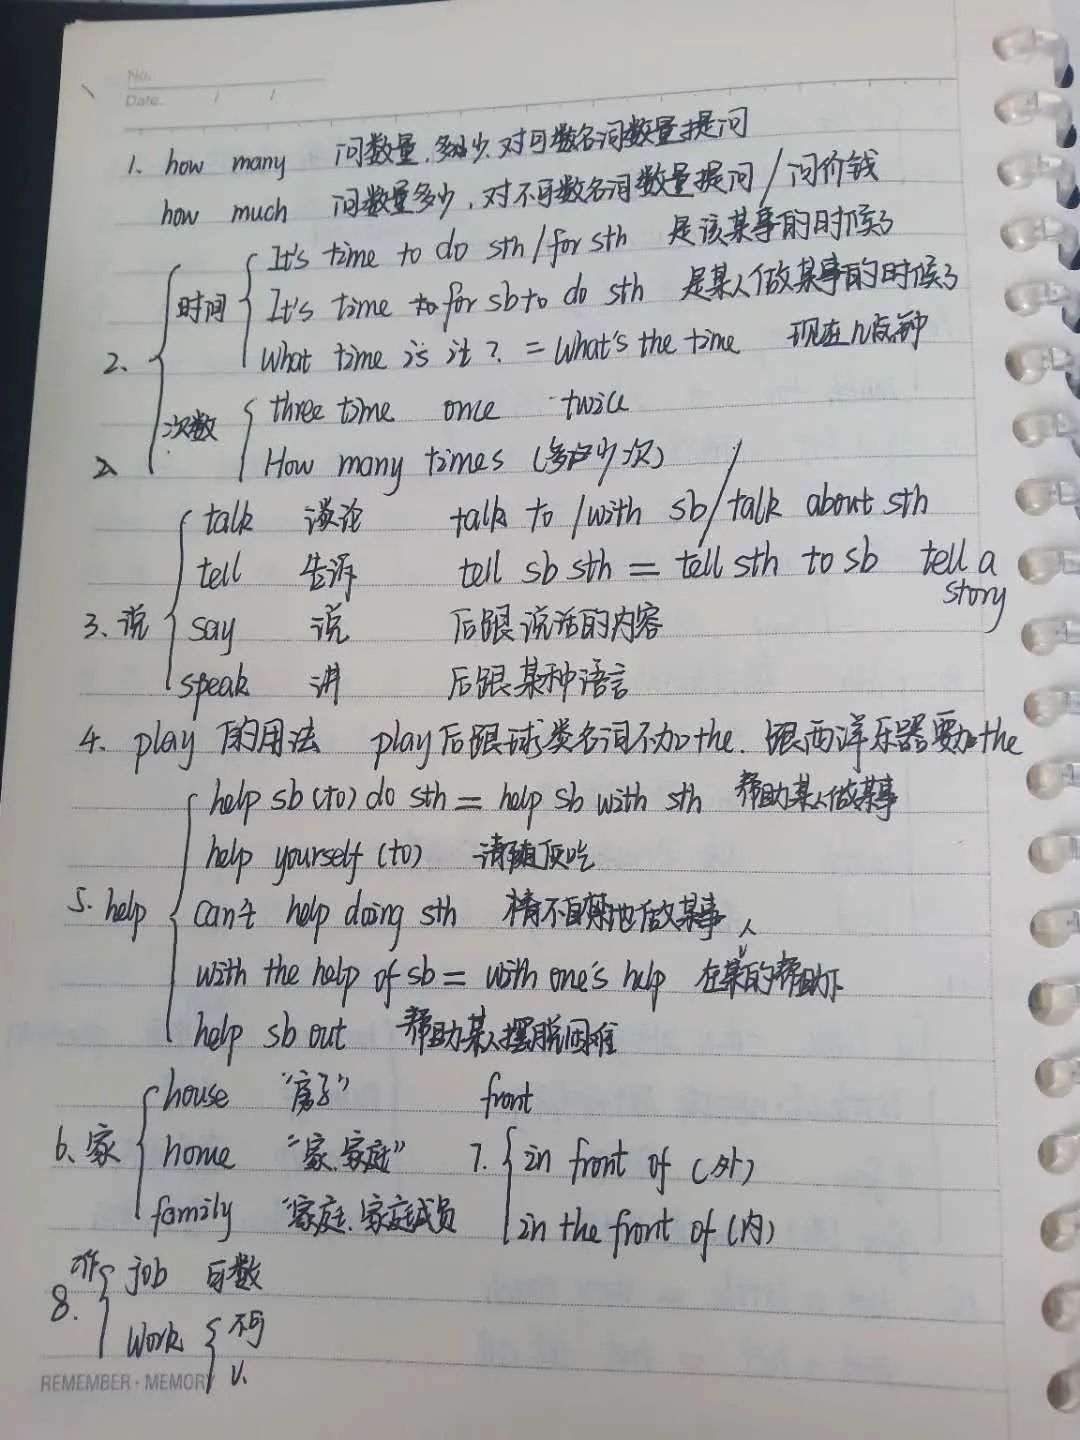 No.
Date. / /
1. how many 问数量.多少.对可数名词数量提问
how much 问数量多少,对不可数名词数量提问/问价钱
It's time to do sth/for sth 是该某事的时候了
时间 It's time to for sb to do sth 是某人做某事的时候了
2. What time is it? = What's the time 现在几点钟
次数 three time once twice
2 How many times (多少次)
talk 谈论 talk to /with sb/talk about sth
tell 告诉 tell sb sth = tell sth to sb tell a story
3、说 say 说 后跟说话的内容
speak 讲 后跟某种语言
4. play 的用法 play后跟球类名词不加the. 跟西洋乐器要加the
help sb (to) do sth = help sb with sth 帮助某人做某事
help yourself (to) 请随便吃
5. help can't help doing sth 情不自禁地做某事
with the help of sb = with one's help 在某人的帮助下
help sb out 帮助某人摆脱困难
house "房子" front
6、家 home "家.家庭" 7. in front of (外)
family "家庭.家庭成员 in the front of (内)
工作 job 可数
8. work 不可
v.
REMEMBER · MEMORY